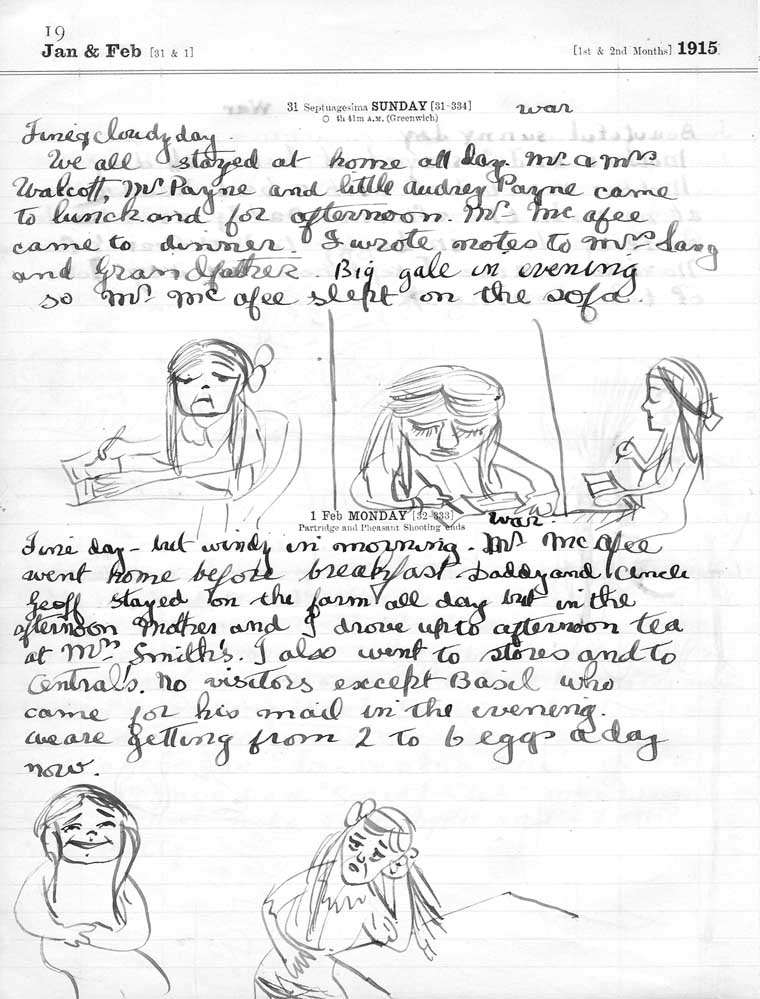 19
Jan & Feb [31 & 1] [1st & 2nd Months] 1915
31 Septuagesima SUNDAY [31-334] war
○ 4h 41m A.M. (Greenwich)
Fine & cloudy day.
We all stayed at home all day. Mr & Mrs
Walcott, Mr Payne and little Audrey Payne came
to lunch and for afternoon. Mr Mc Afee
came to dinner. I wrote notes to Mrs Lang
and Grandfather. Big gale in evening
so Mr Mc Afee slept on the sofa.
1 Feb MONDAY [32-333] war.
Partridge and Pheasant Shooting ends
Fine day - but windy in morning. Mr Mc Afee
went home before breakfast. Daddy and Uncle
Geoff stayed on the farm all day but in the
afternoon Mother and I drove up to afternoon tea
at Mrs Smith's. I also went to stores and to
Central's. No visitors except Basil who
came for his mail in the evening.
We are getting from 2 to 6 eggs a day
now.